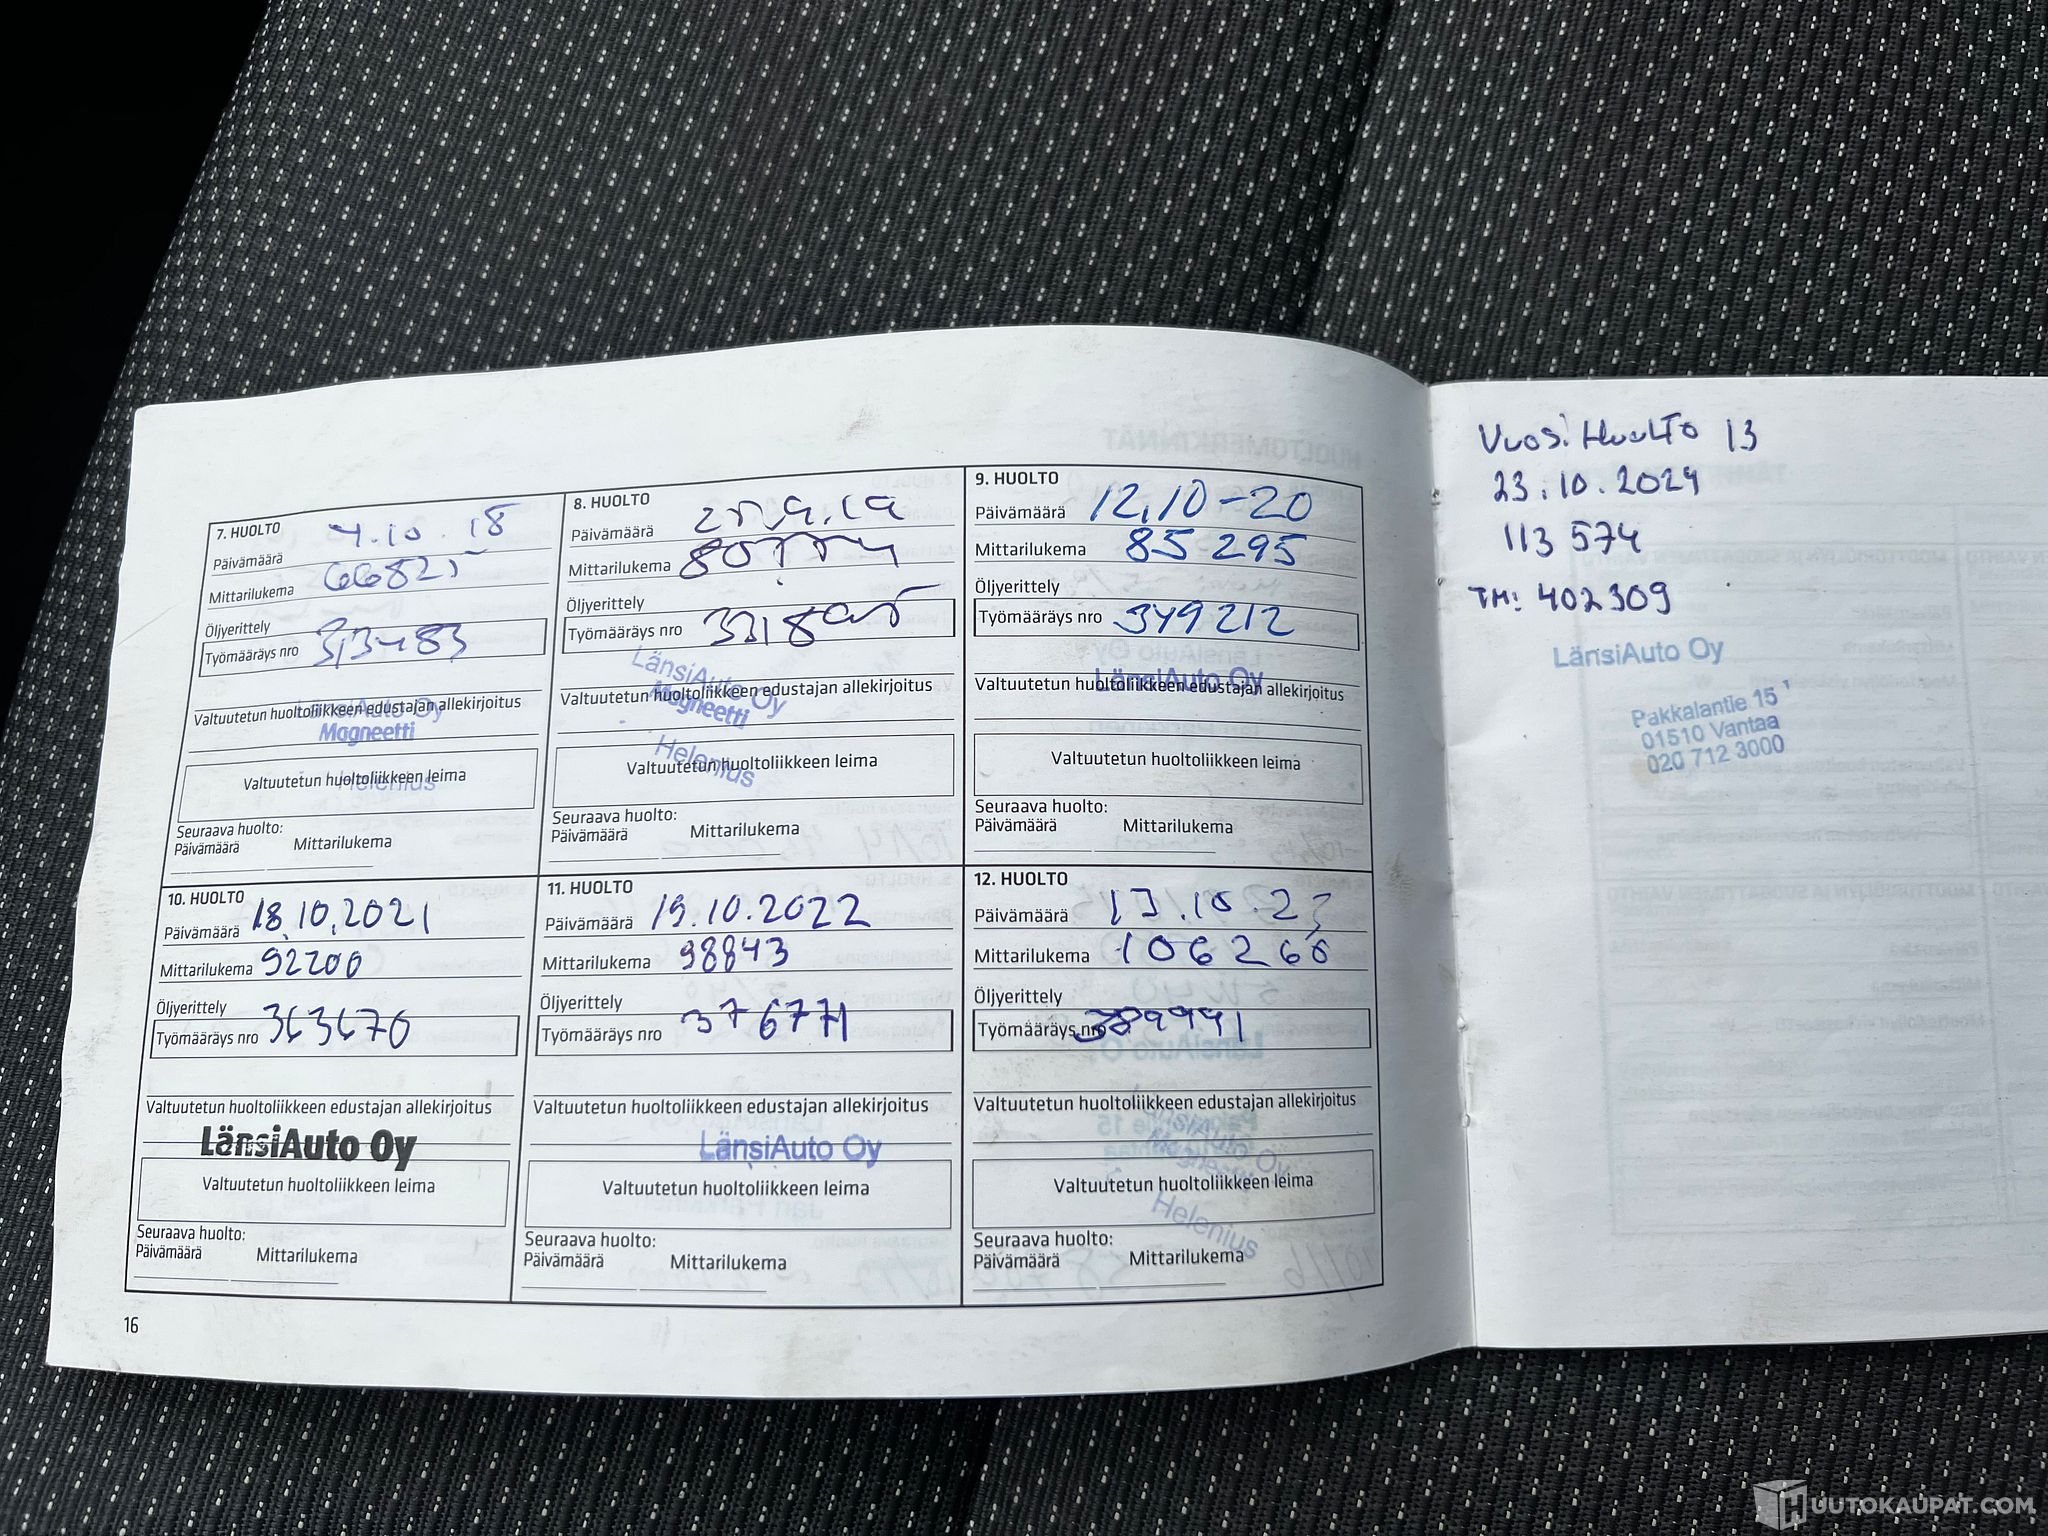 7. HUOLTO
Päivämäärä 4.10.18
Mittarilukema 66821
Öljyerittely
Työmääräys nro 313483
Valtuutetun huoltoliikkeen edustajan allekirjoitus
LänsiAuto Oy
Magneetti
Valtuutetun huoltoliikkeen leima
Helenius
Seuraava huolto:
Päivämäärä Mittarilukema
8. HUOLTO
Päivämäärä
Mittarilukema
Öljyerittely
Työmääräys nro
LänsiAuto Oy
Magneetti
Valtuutetun huoltoliikkeen edustajan allekirjoitus
Helenius
Valtuutetun huoltoliikkeen leima
Seuraava huolto:
Päivämäärä Mittarilukema
9. HUOLTO
Päivämäärä 12.10-20
Mittarilukema 85 295
Öljyerittely
Työmääräys nro 349212
LänsiAuto Oy
Valtuutetun huoltoliikkeen edustajan allekirjoitus
Valtuutetun huoltoliikkeen leima
Seuraava huolto:
Päivämäärä Mittarilukema
10. HUOLTO
Päivämäärä 18.10.2021
Mittarilukema 92200
Öljyerittely
Työmääräys nro 363670
Valtuutetun huoltoliikkeen edustajan allekirjoitus
LänsiAuto Oy
Valtuutetun huoltoliikkeen leima
Seuraava huolto:
Päivämäärä Mittarilukema
11. HUOLTO
Päivämäärä 19.10.2022
Mittarilukema 98843
Öljyerittely
Työmääräys nro 376771
Valtuutetun huoltoliikkeen edustajan allekirjoitus
LänsiAuto Oy
Valtuutetun huoltoliikkeen leima
Seuraava huolto:
Päivämäärä Mittarilukema
12. HUOLTO
Päivämäärä
Mittarilukema 106266
Öljyerittely
Työmääräys nro
Valtuutetun huoltoliikkeen edustajan allekirjoitus
Valtuutetun huoltoliikkeen leima
Helenius
Seuraava huolto:
Päivämäärä Mittarilukema
16
VuosiHuolto 13
23.10.2024
113 574
TM: 402309
LänsiAuto Oy
Pakkalantie 15
01510 Vantaa
020 712 3000
HUUTOKAUPAT.COM